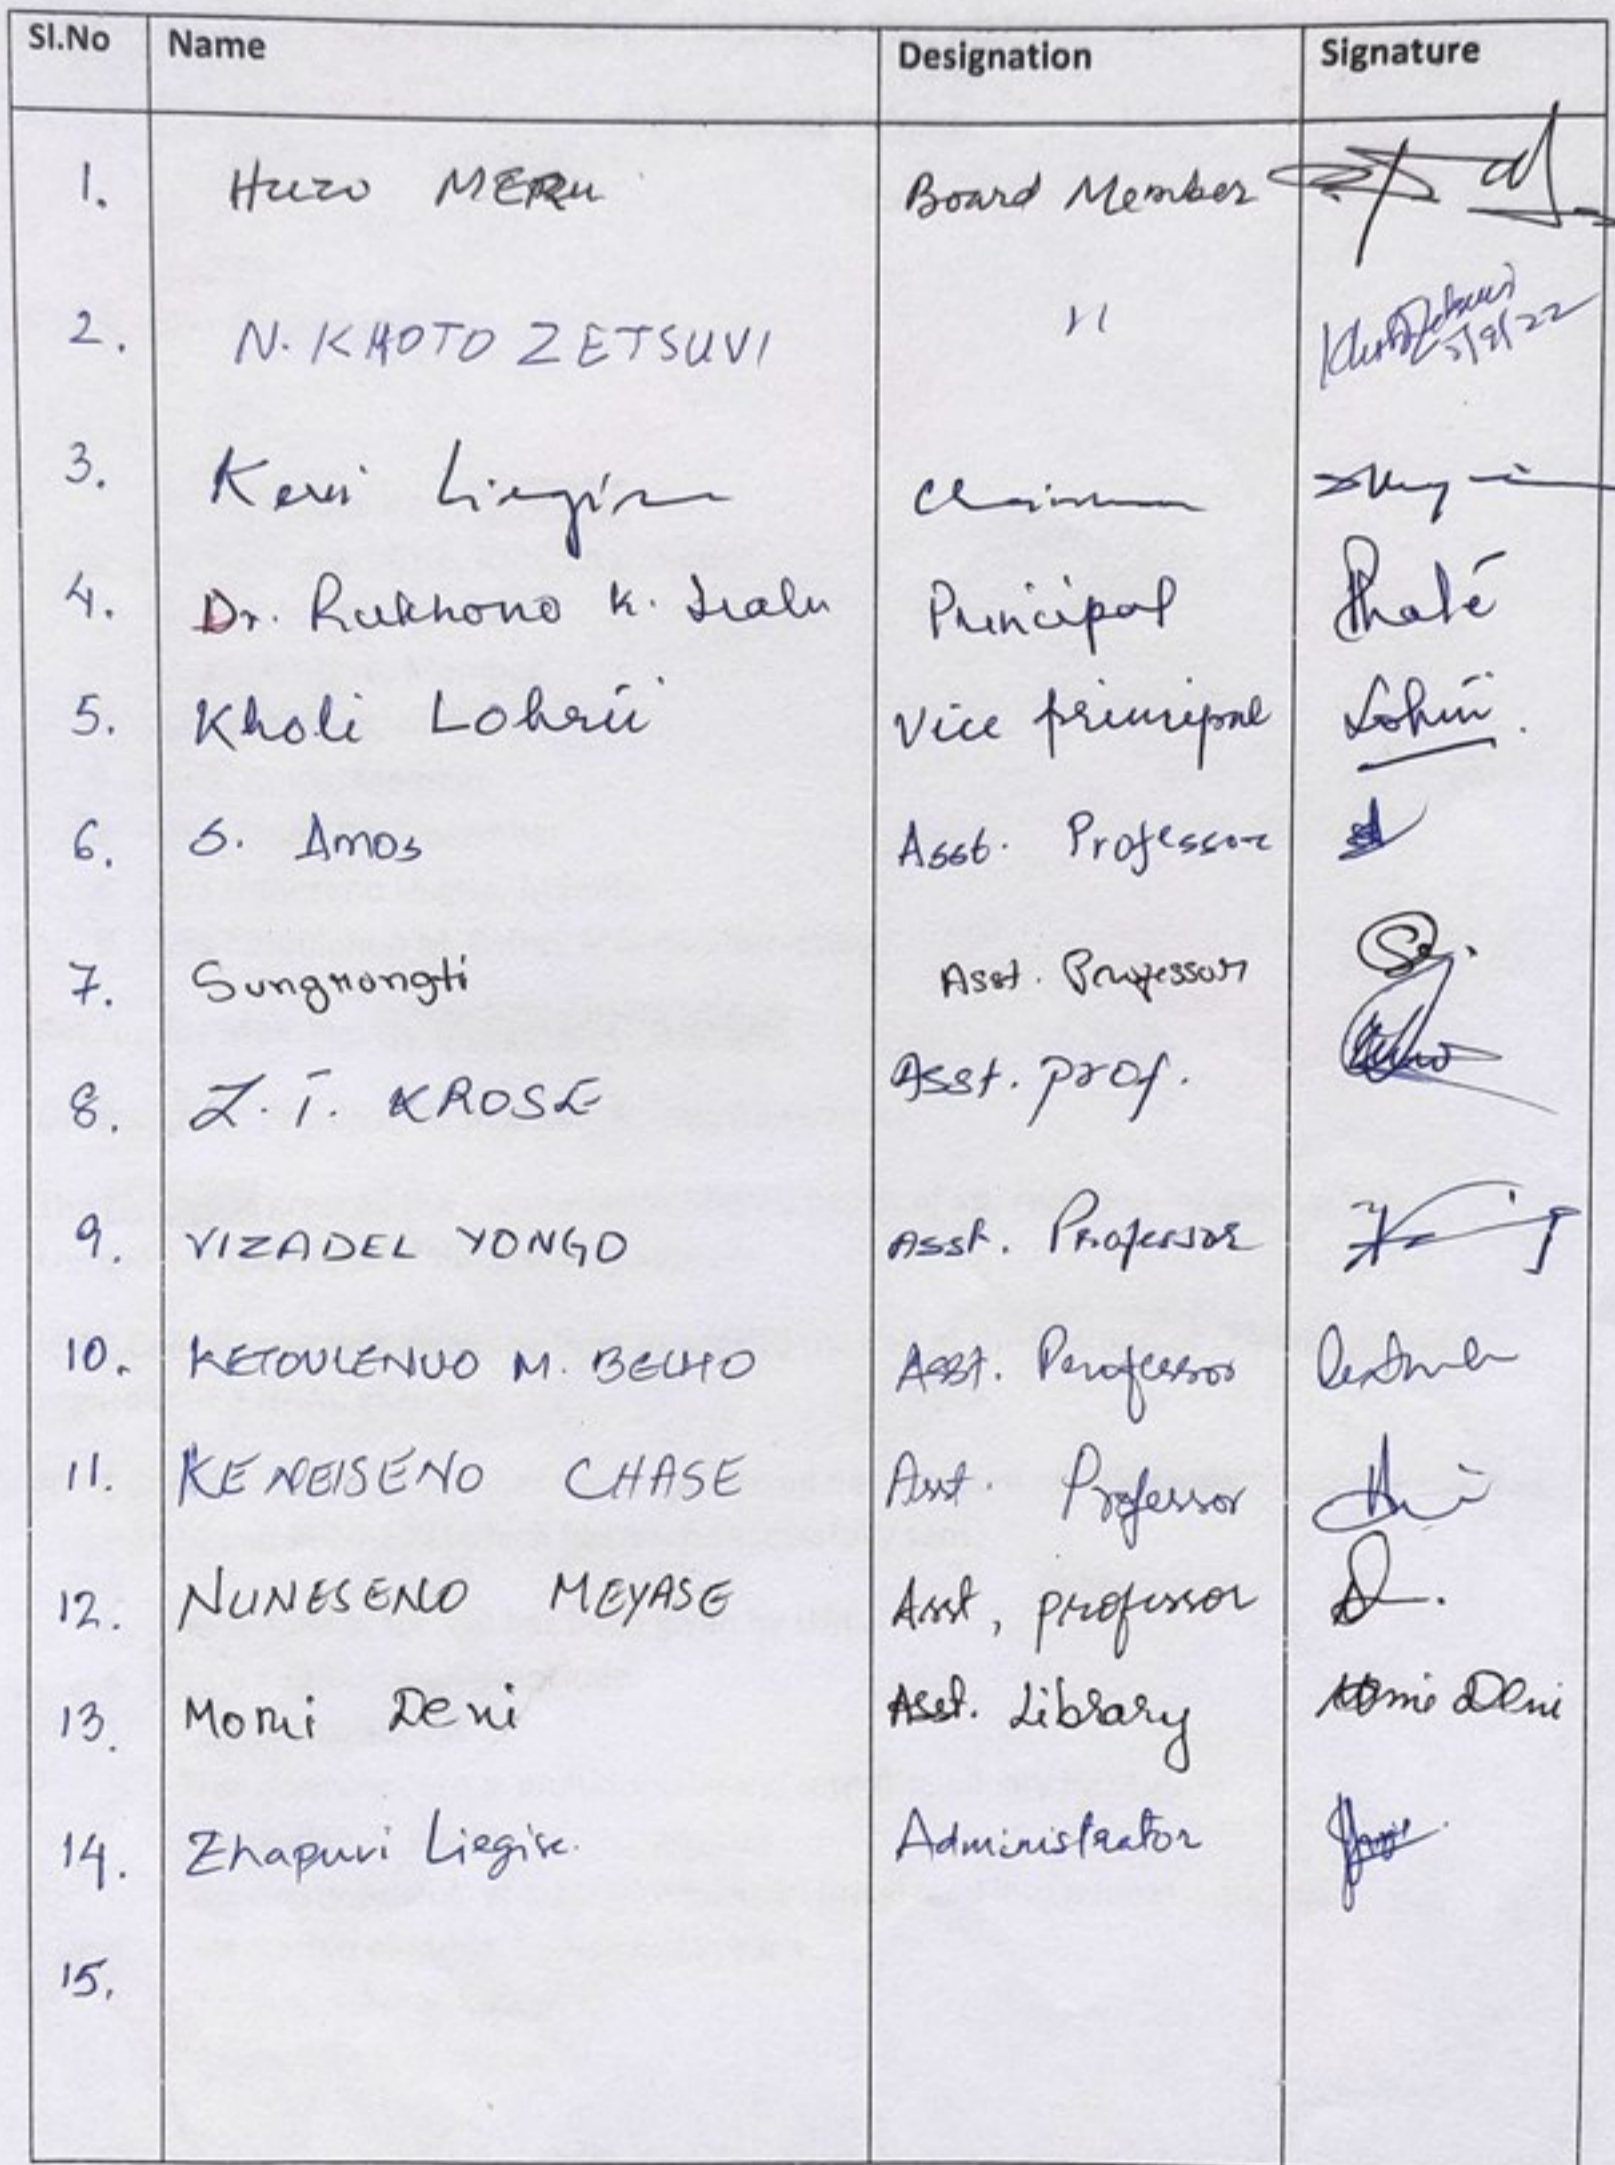 Sl.No Name Designation Signature
1. Huzo MERU Board Member
2. N. KHOTO ZETSUVI "
3. Kevi Liegise Chairman
4. Dr. Rukhono K. Iralu Principal
5. Kholi Lohrü Vice principal Lohrü.
6. S. Amos Asst. Professor
7. Sungnongti Asst. Professor
8. Z. T. KROSE Asst. prof.
9. VIZADEL YONGO Asst. Professor
10. KETOULENUO M. BELHO Asst. Professor
11. KENEISENO CHASE Asst. Professor
12. NUNESENO MEYASE Asst, professor
13. Momi Deni Asst. Library Momi Deni
14. Zhapuvi Liegise. Administrator
15.